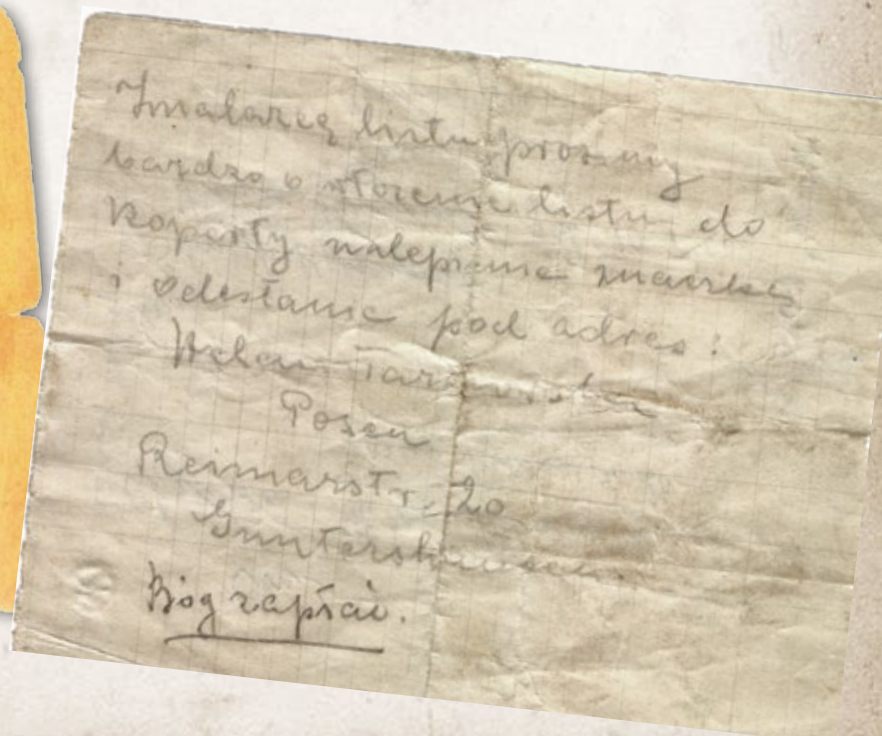 Znalazcę listu prosimy
bardzo o włożenie listu do
koperty nalepienie znaczka
i odesłanie pod adres:
Posen
Reimarstr. 20
Guntershausen.
Bóg zapłać.